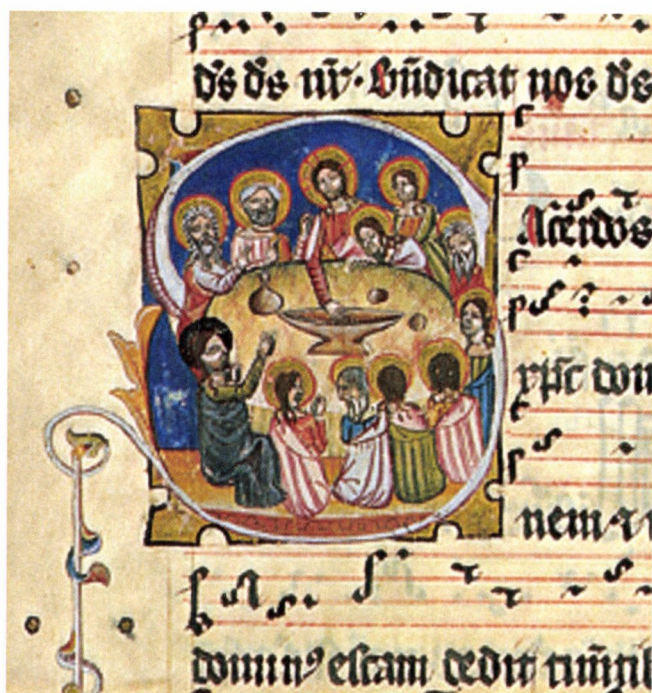 ds ds nr. Bndicat nos ds
Acerdos
xpc dom
nem
domin⁹ escam dedit